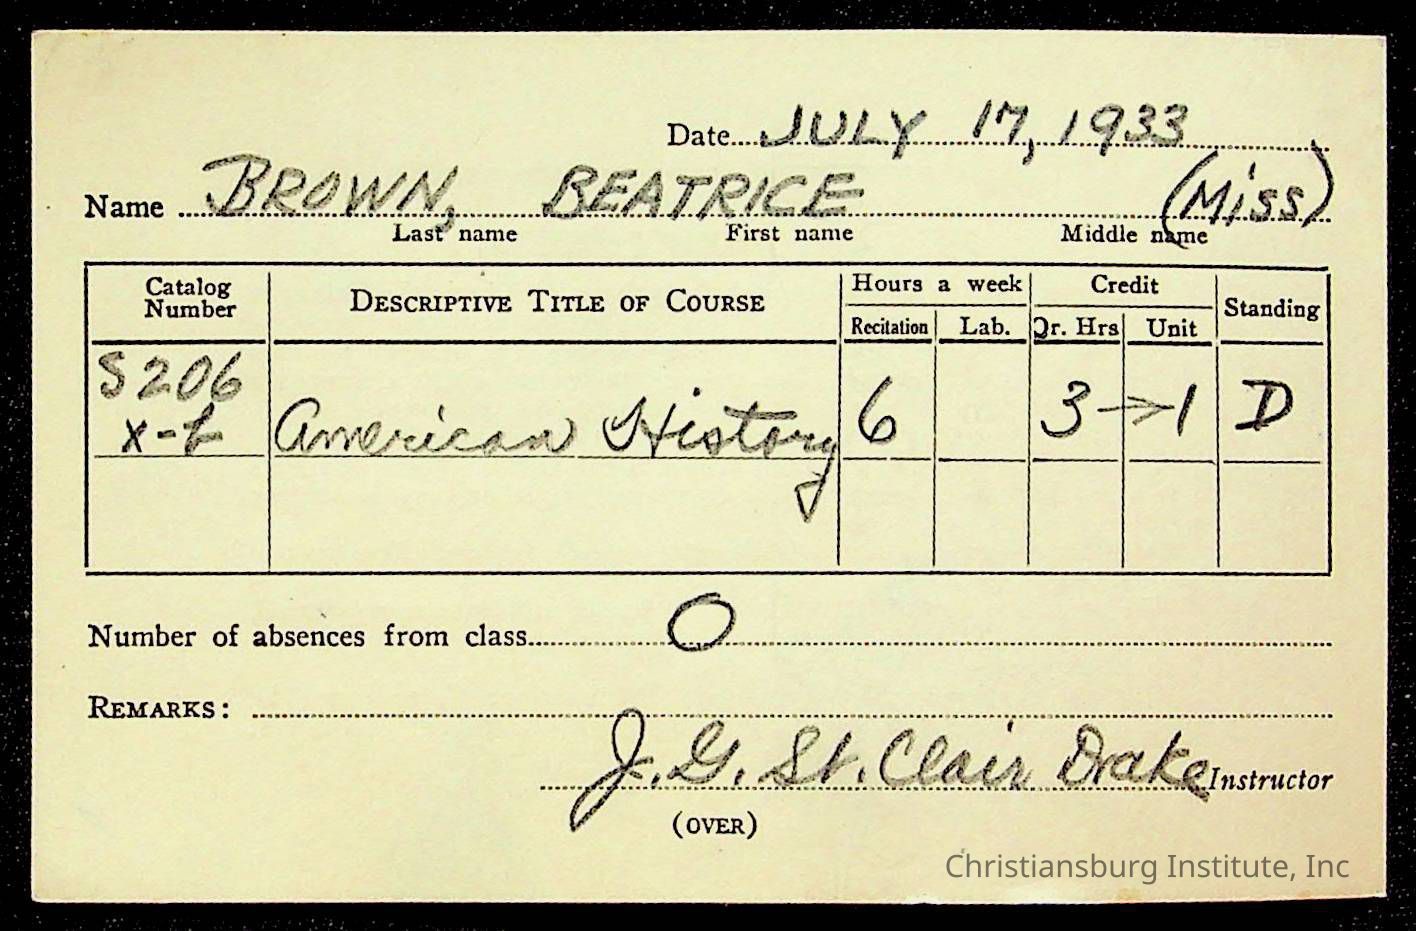 Date JULY 17, 1933
Name BROWN, BEATRICE (Miss)
Last name First name Middle name
Catalog Number DESCRIPTIVE TITLE OF COURSE Hours a week Credit Standing
Recitation Lab. Qr. Hrs Unit
S206
x-f American History 6 3→1 D
Number of absences from class 0
REMARKS:
J. G. St. Clair Drake Instructor
(OVER)
Christiansburg Institute, Inc